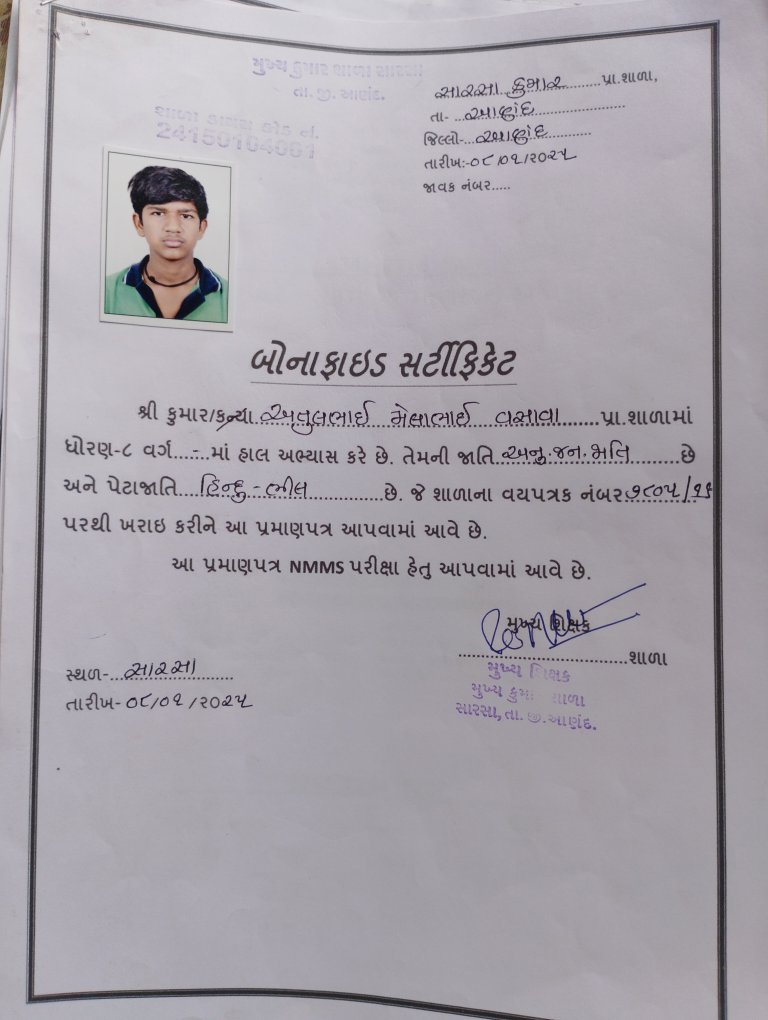 મુખ્ય કુમાર શાળા સારસા
તા.જી. આણંદ.
સારસા કુમાર પ્રા.શાળા,
તા- આણંદ
જિલ્લો- આણંદ
તારીખ:-૦૮/૦૧/૨૦૨૫
જાવક નંબર.....
શાળા ડાયસ કોડ નં.
24150104001
બોનાફાઇડ સર્ટીફિકેટ
શ્રી કુમાર/કન્યા અતુલભાઈ મેલાભાઈ વસાવા પ્રા.શાળામાં
ધોરણ-૮ વર્ગ...-...માં હાલ અભ્યાસ કરે છે. તેમની જાતિ અનુ.જન.જાતિ છે
અને પેટાજાતિ હિન્દુ-ભીલ છે. જે શાળાના વયપત્રક નંબર ૭૮૦૫/૧૬
પરથી ખરાઇ કરીને આ પ્રમાણપત્ર આપવામાં આવે છે.
આ પ્રમાણપત્ર NMMS પરીક્ષા હેતુ આપવામાં આવે છે.
મુખ્ય શિક્ષક
શાળા
સ્થળ- સારસા
તારીખ- ૦૮/૦૧/૨૦૨૫
મુખ્ય શિક્ષક
મુખ્ય કુમાર શાળા
સારસા, તા. જી. આણંદ.